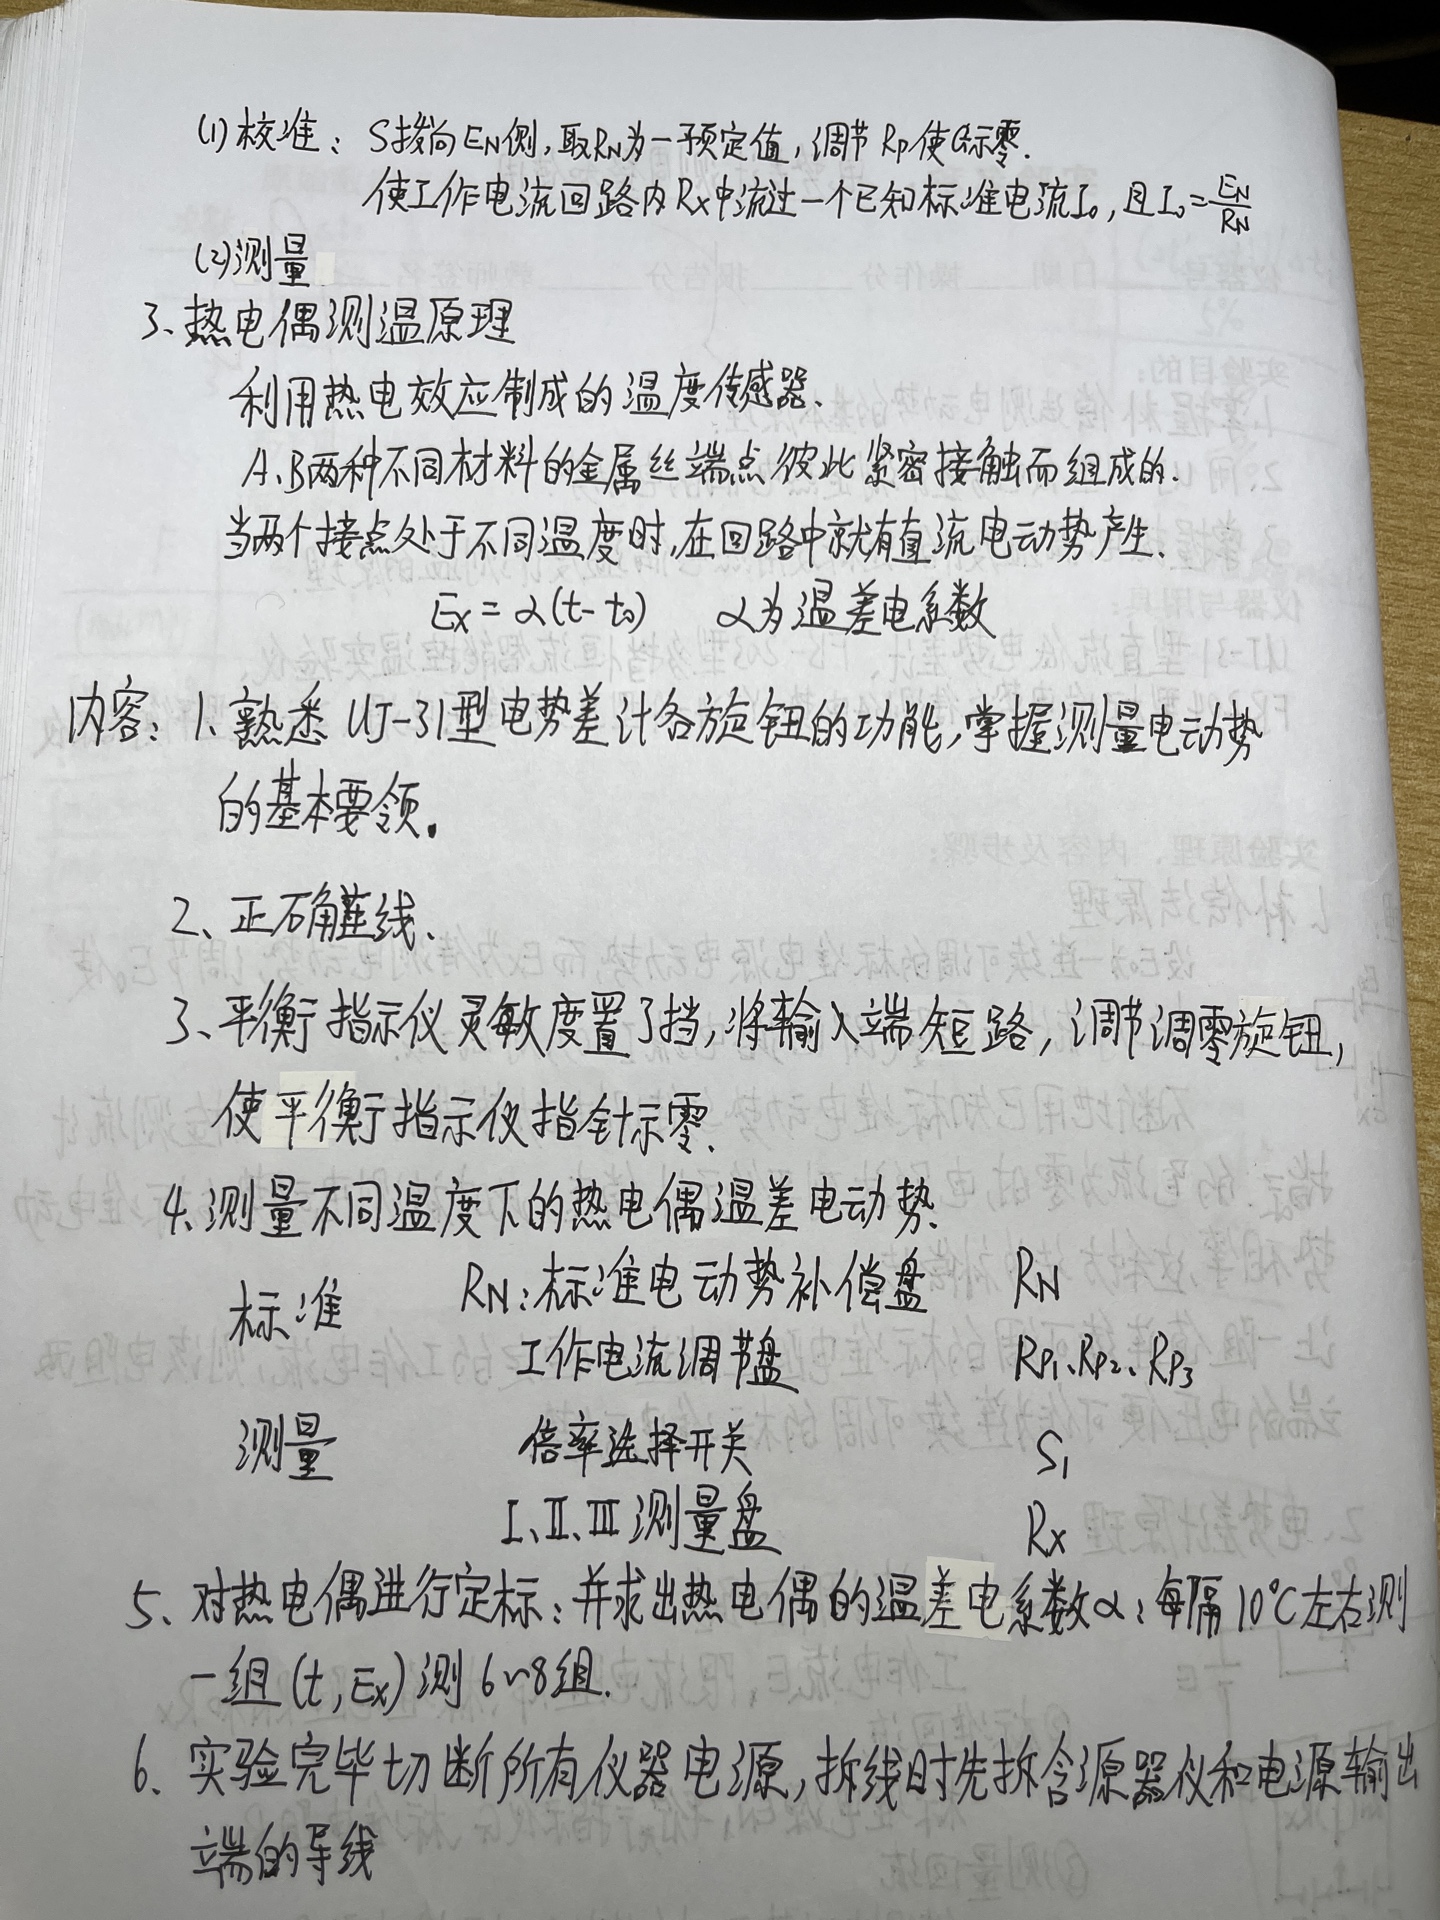 (1)校准：S拨向EN侧，取RN为一预定值，调节RP使G标零.
使工作电流回路内Rx中流过一个已知标准电流I0，且I0=EN/RN
(2)测量
3、热电偶测温原理
利用热电效应制成的温度传感器.
A、B两种不同材料的金属丝端点彼此紧密接触而组成的.
当两个接点处于不同温度时,在回路中就有直流电动势产生.
Ex=α(t-t0) α为温差电系数
内容：1、熟悉UJ-31型电势差计各旋钮的功能，掌握测量电动势
的基本要领。
2、正确连线、
3、平衡指示仪灵敏度置了挡，将输入端短路，调节调零旋钮，
使平衡指示仪指针示零.
4、测量不同温度下的热电偶温差电动势.
标准 RN：标准电动势补偿盘 RN
工作电流调节盘 RP1、RP2、RP3
测量 倍率选择开关 S1
I、II、III测量盘 Rx
5、对热电偶进行定标：并求出热电偶的温差电系数α：每隔10℃左右测
一组(t,Ex)测6~8组.
6、实验完毕切断所有仪器电源，拆线时先拆含源器仪和电源输出
端的导线